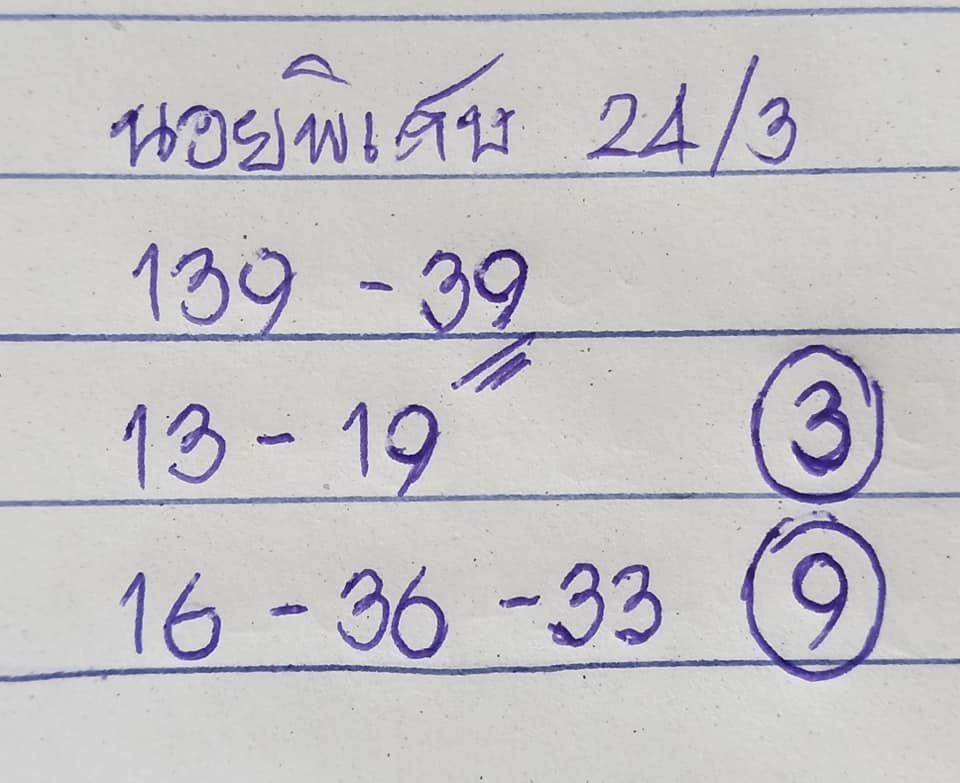 นอยพิเศษ 24/3
139 - 39
13 - 19 3
16 - 36 - 33 9